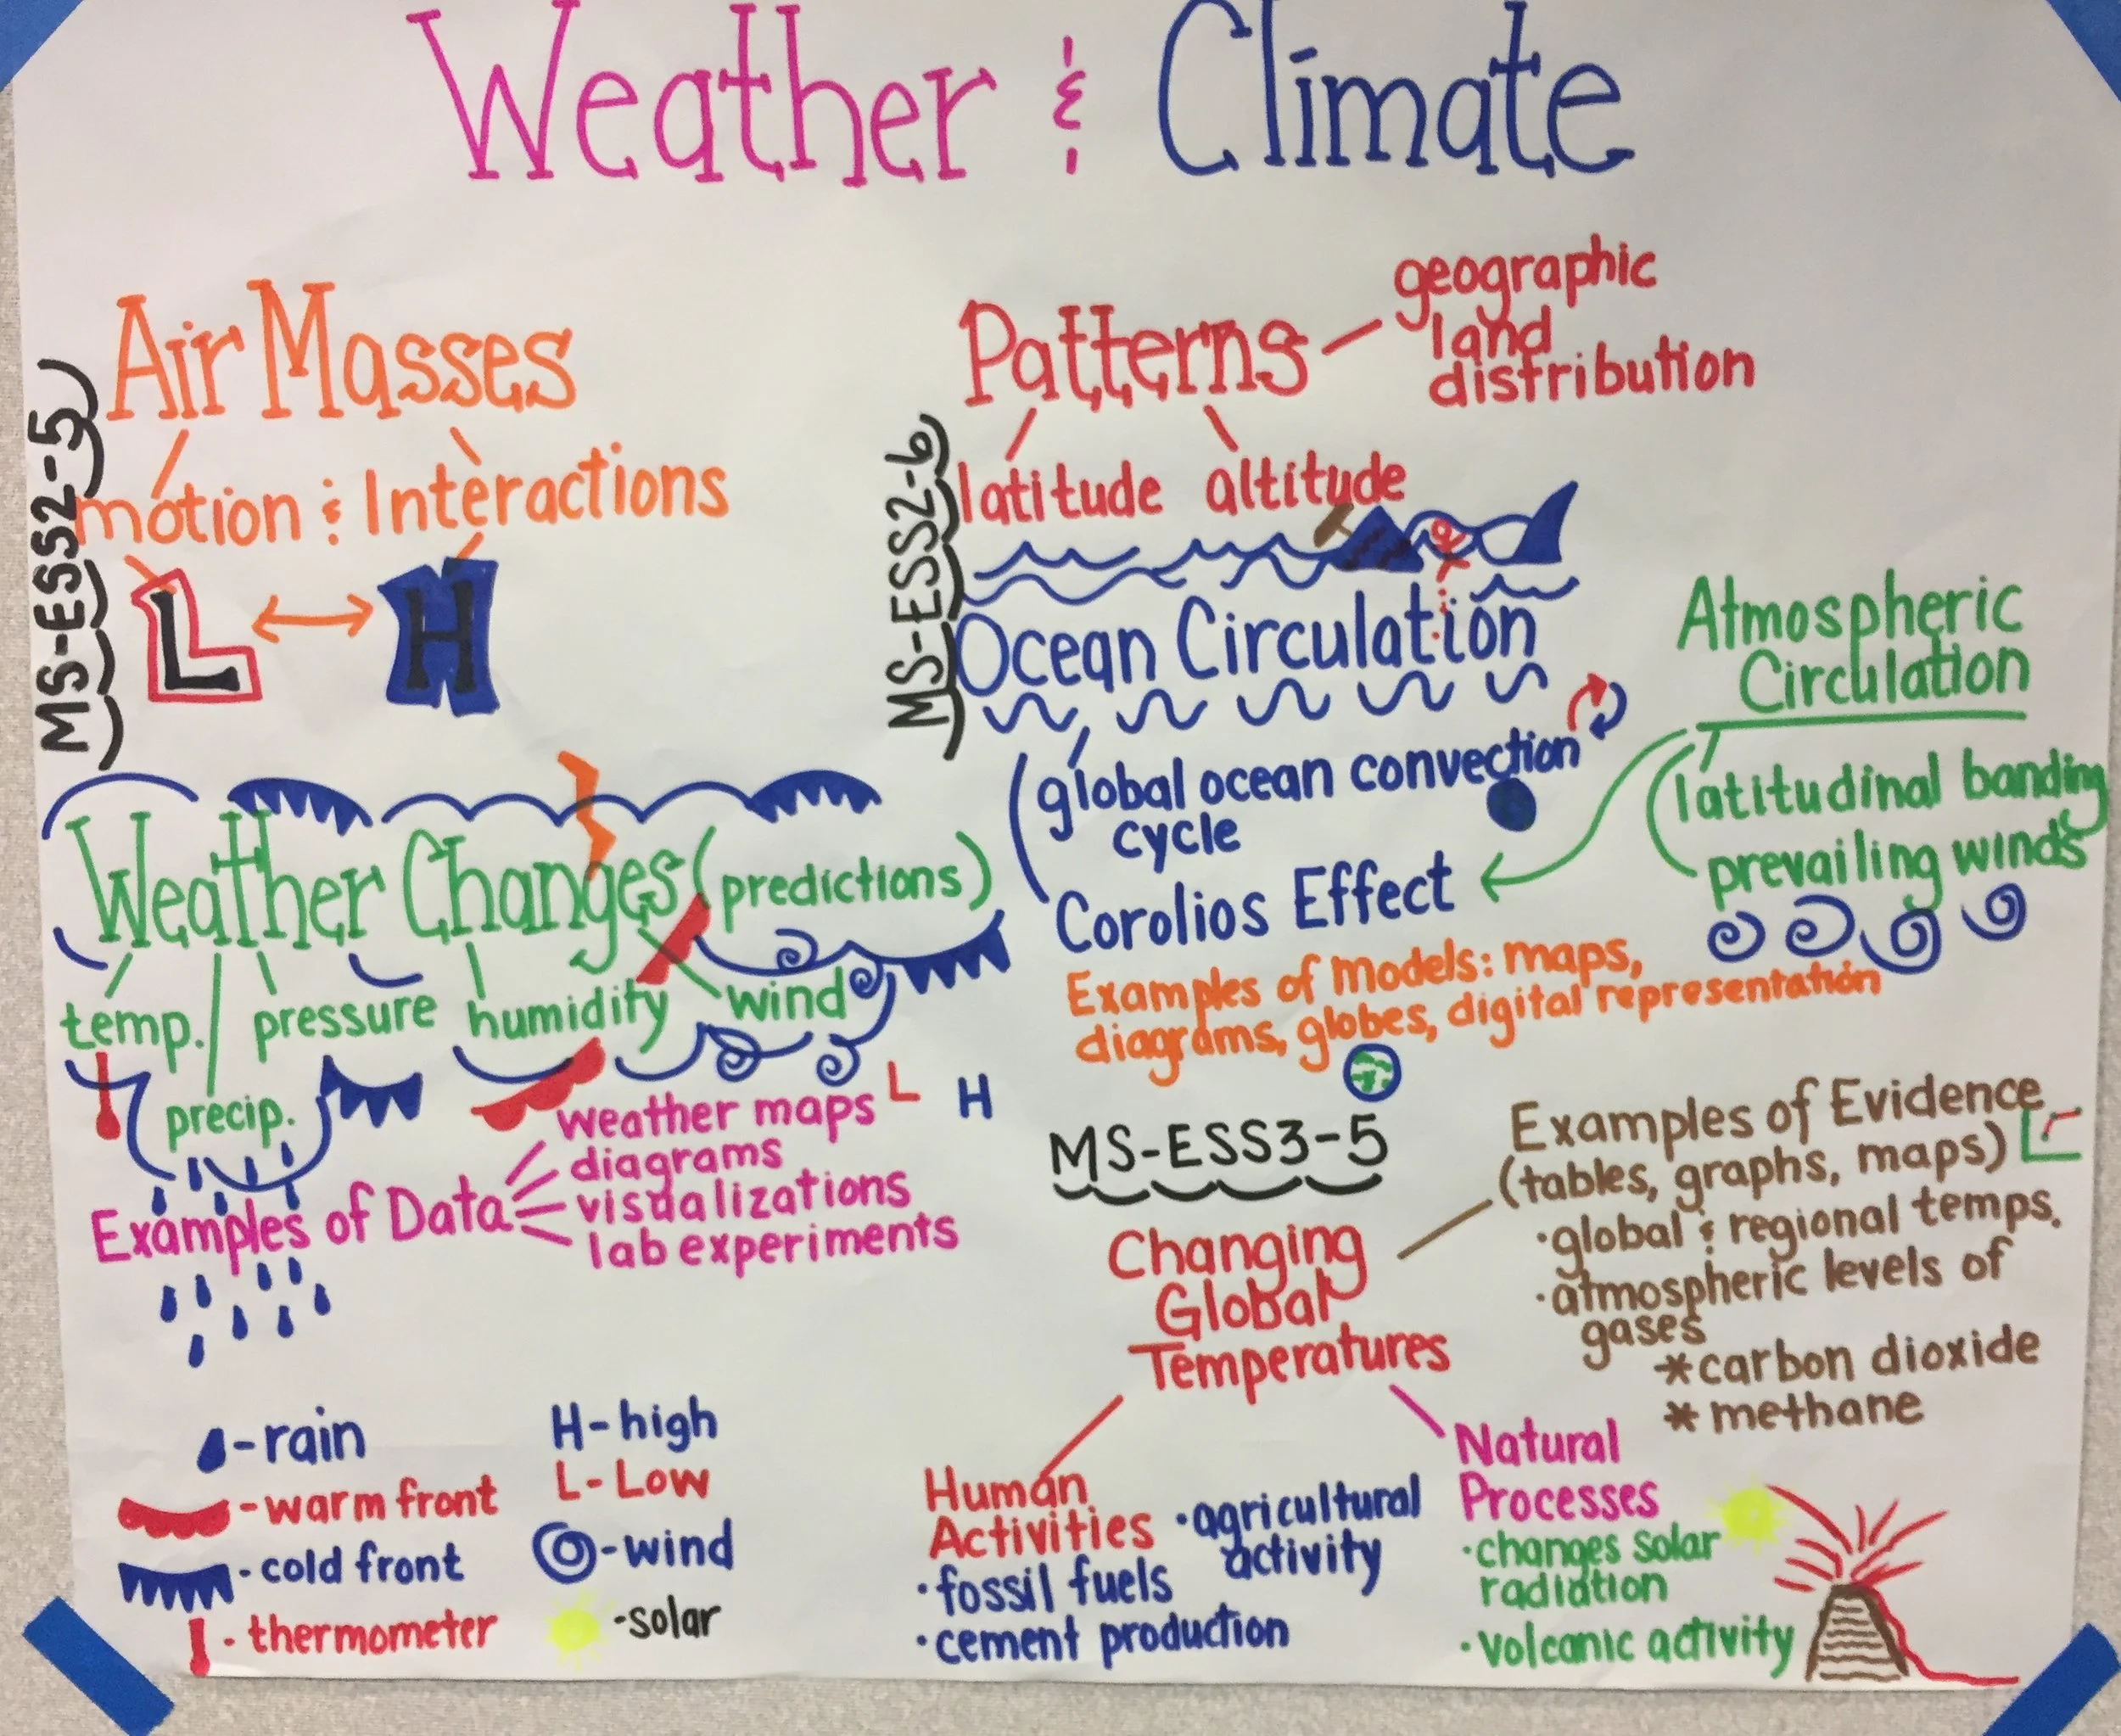 Weather & Climate
MS-ESS2-5
Air Masses
motion & Interactions
L H
Weather Changes (predictions)
temp. pressure humidity wind
precip.
L H
Examples of Data
weather maps
diagrams
visualizations
lab experiments
-rain
-warm front
-cold front
-thermometer
H-high
L-Low
-wind
-solar
MS-ESS2-6
Patterns
geographic
land
distribution
latitude altitude
Ocean Circulation
global ocean convection
cycle
Corolios Effect
Atmospheric
Circulation
latitudinal banding
prevailing winds
Examples of models: maps,
diagrams, globes, digital representation
MS-ESS3-5
Changing
Global
Temperatures
Examples of Evidence
(tables, graphs, maps)
·global & regional temps.
·atmospheric levels of
gases
*carbon dioxide
*methane
Human
Activities
·fossil fuels
·cement production
·agricultural
activity
Natural
Processes
·changes solar
radiation
·volcanic activity